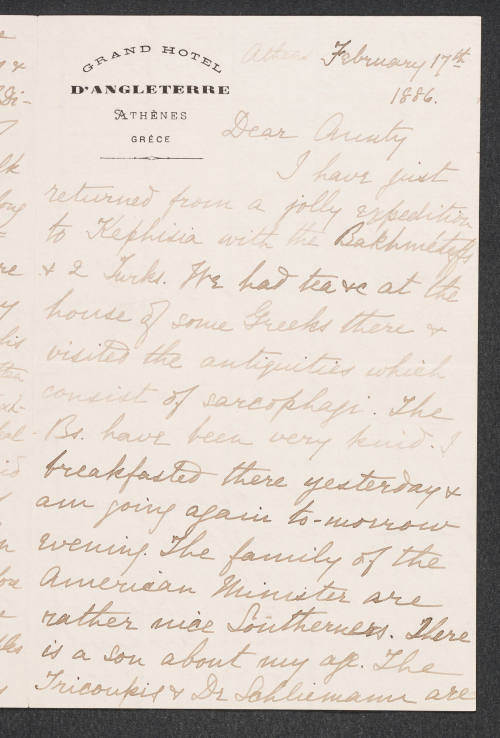 GRAND HOTEL
D'ANGLETERRE
ATHÈNES
GRÉCE
Athens February 17th
1886.
Dear Aunty
I have just
returned from a jolly expedition
to Kephisia with the Bakhméteffs
& 2 Turks. We had tea &c at the
house of some Greeks there &
visited the antiquities which
consist of sarcophagi. The
Bs. have been very kind. I
breakfasted there yesterday &
am going again to-morrow
evening. The family of the
American Minister are
rather nice Southerners. There
is a son about my age. The
Tricoupis & Dr Schliemann are